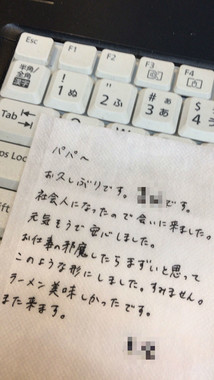 Esc
F1
F2
F3
F4
半角/
全角
漢字
!
1 ぬ
"
2 ふ
#
3 あ
$
4
Tab
Caps Loc
Shift
パパへ
お久しぶりです。です。
社会人になったので会いに来ました。
元気そうで安心しました。
お仕事の邪魔したらまずいと思って
このような形にしました。すみません。
ラーメン美味しかったです。
また来ます。